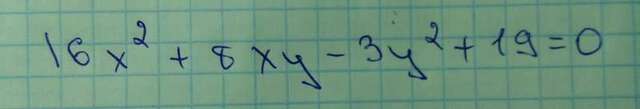 16x² + 8xy - 3y² + 19 = 0